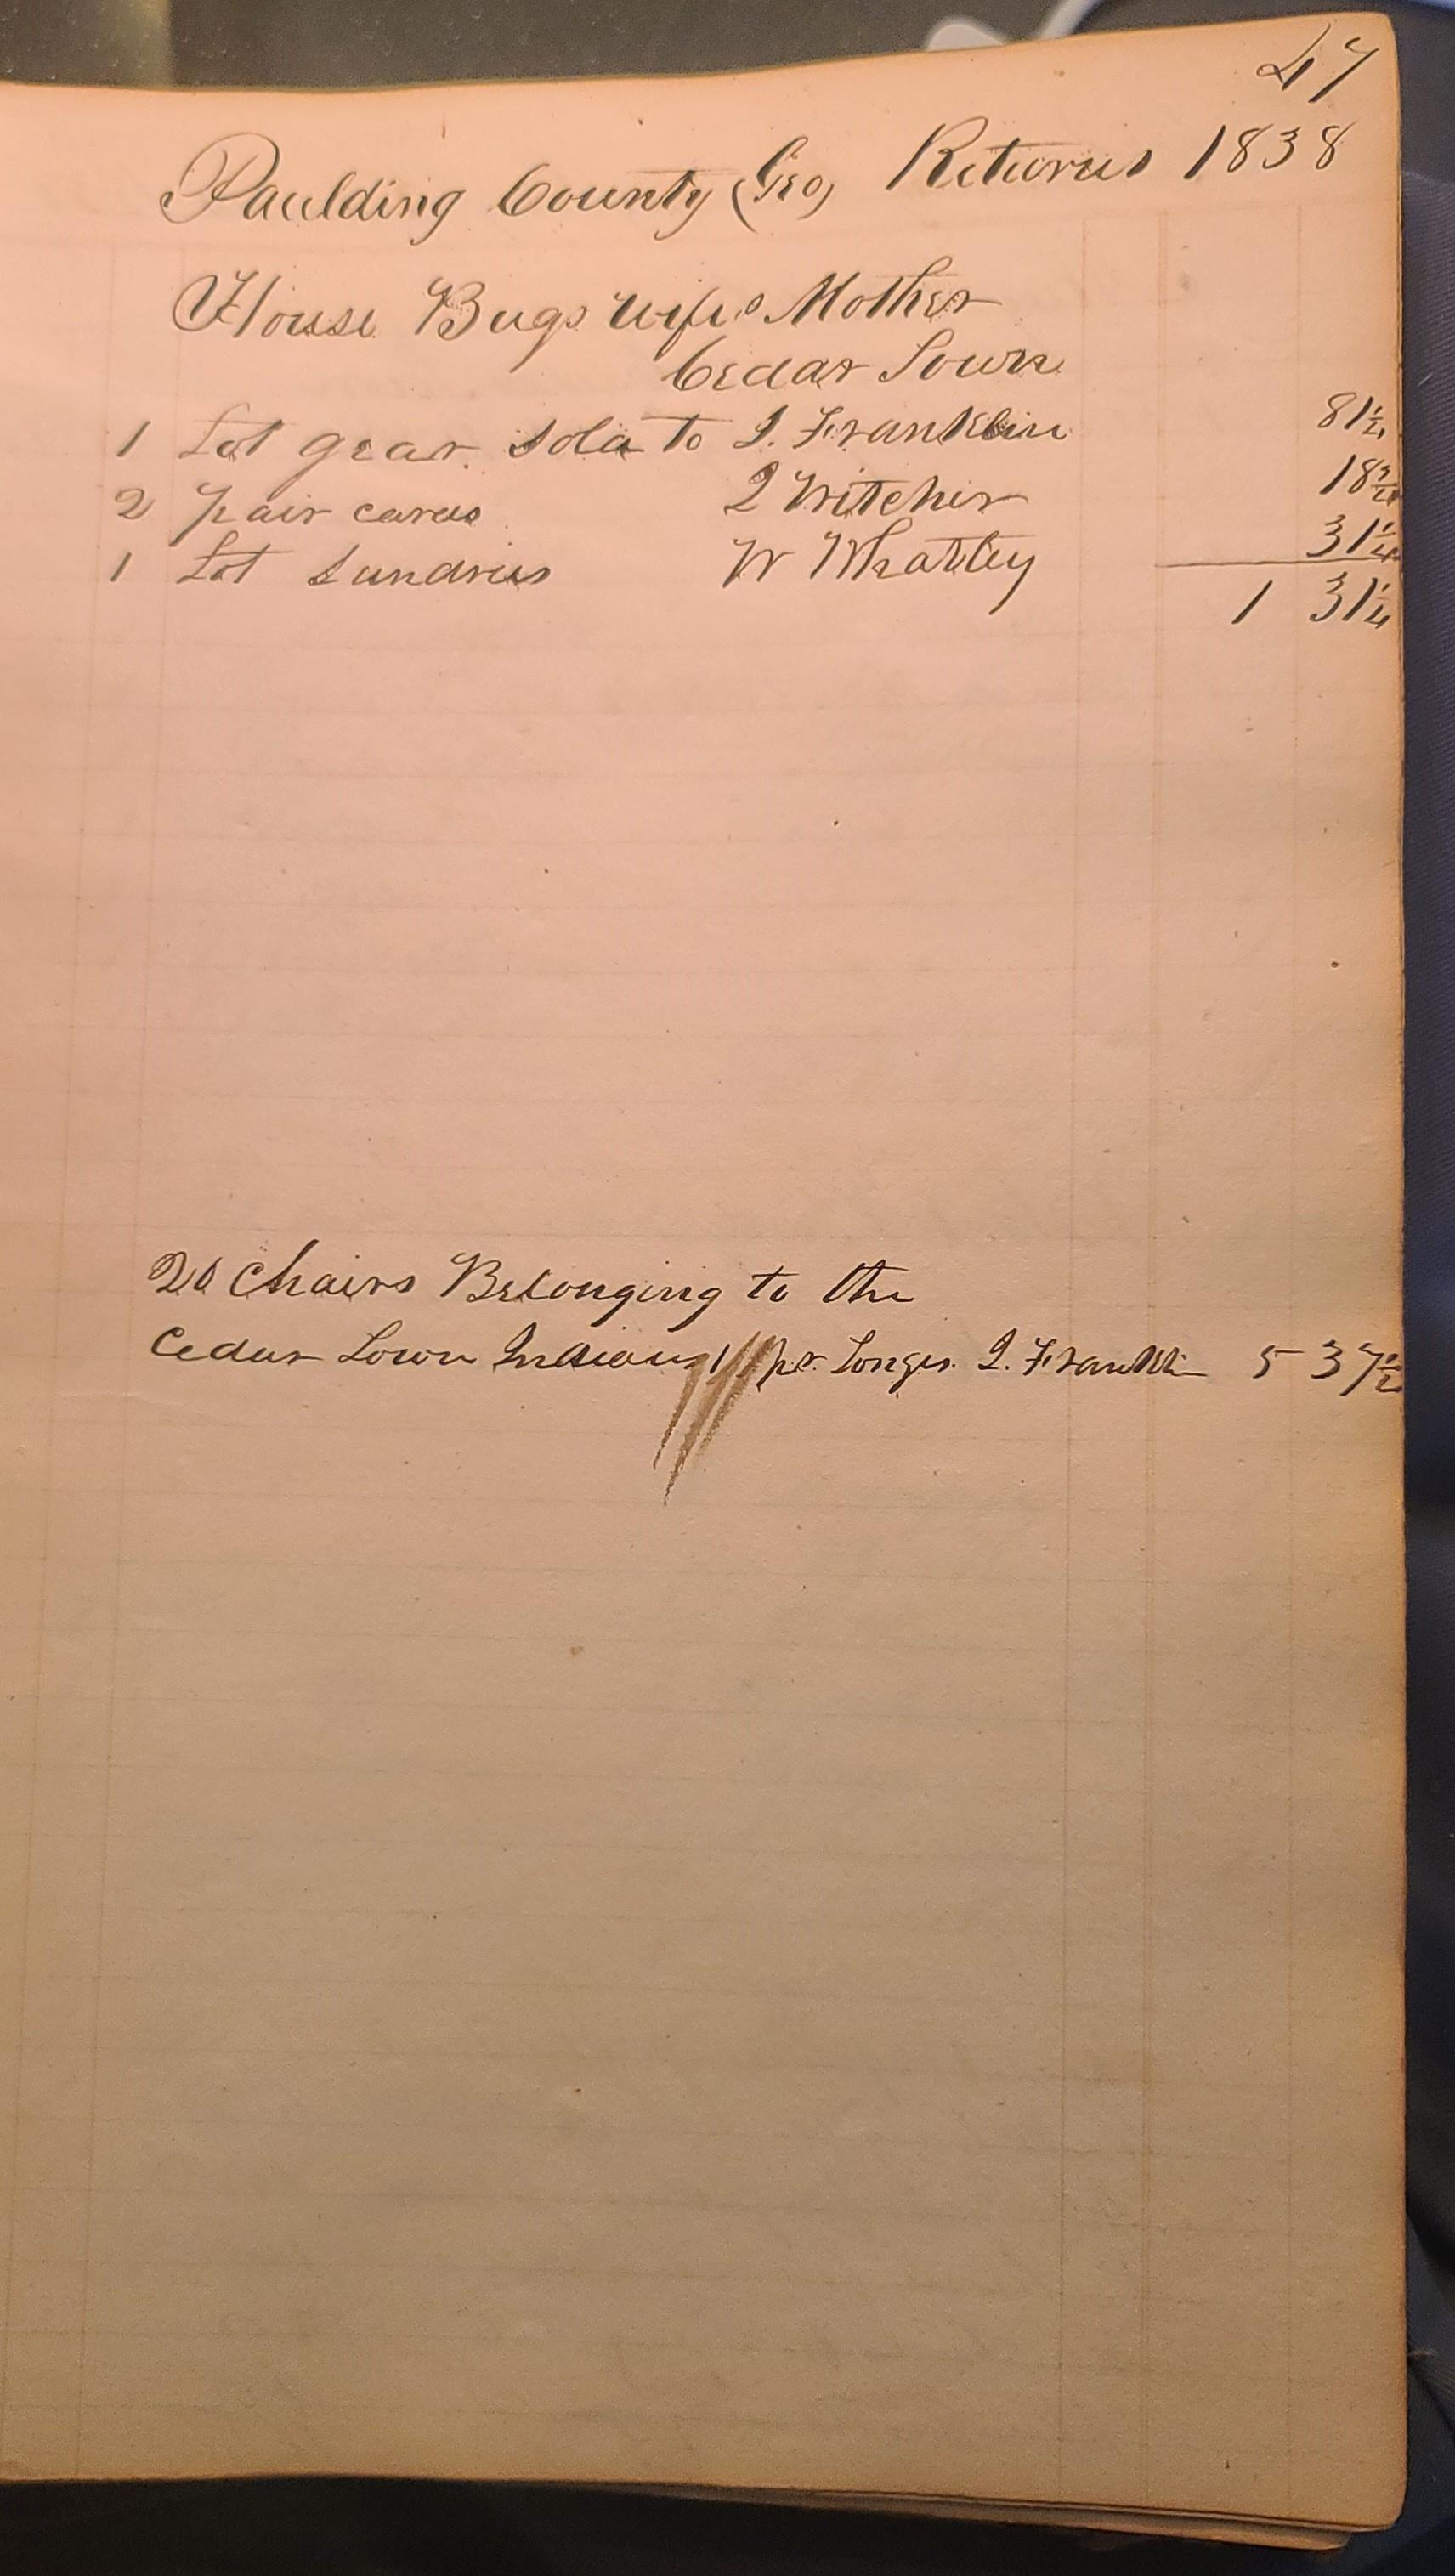 47
Paulding County (Geo) Returns 1838
House Bugs wife's Mother
Cedar Town
1 Lot gear. sold to I. Franklin 81 1/4
2 pair cards I Witcher 18 3/4
1 Lot Sundries W Whatley 31 1/4
1 31 1/4
20 Chairs Belonging to the
Cedar Town Indians 1 pr. Tongs. I. Franklin 5 37 1/2